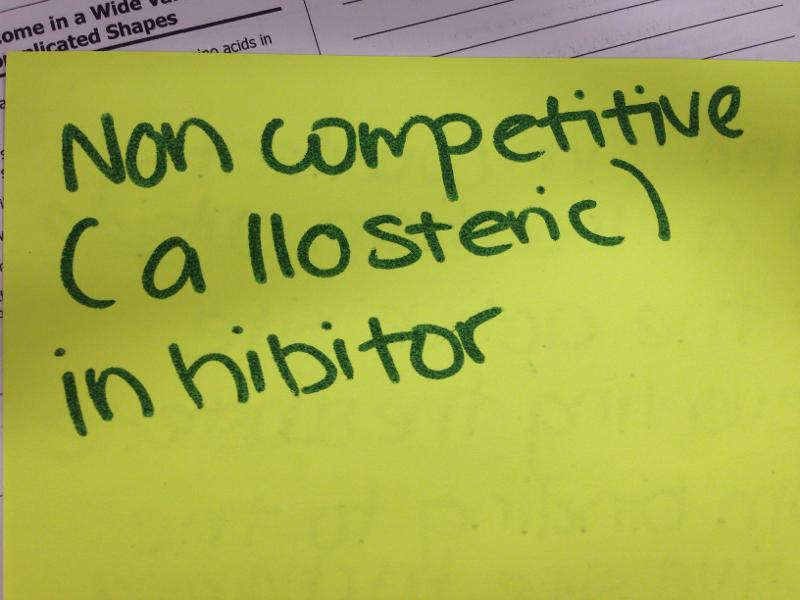 ome in a Wide
plicated Shapes
acids in
Non competitive
(allosteric)
inhibitor